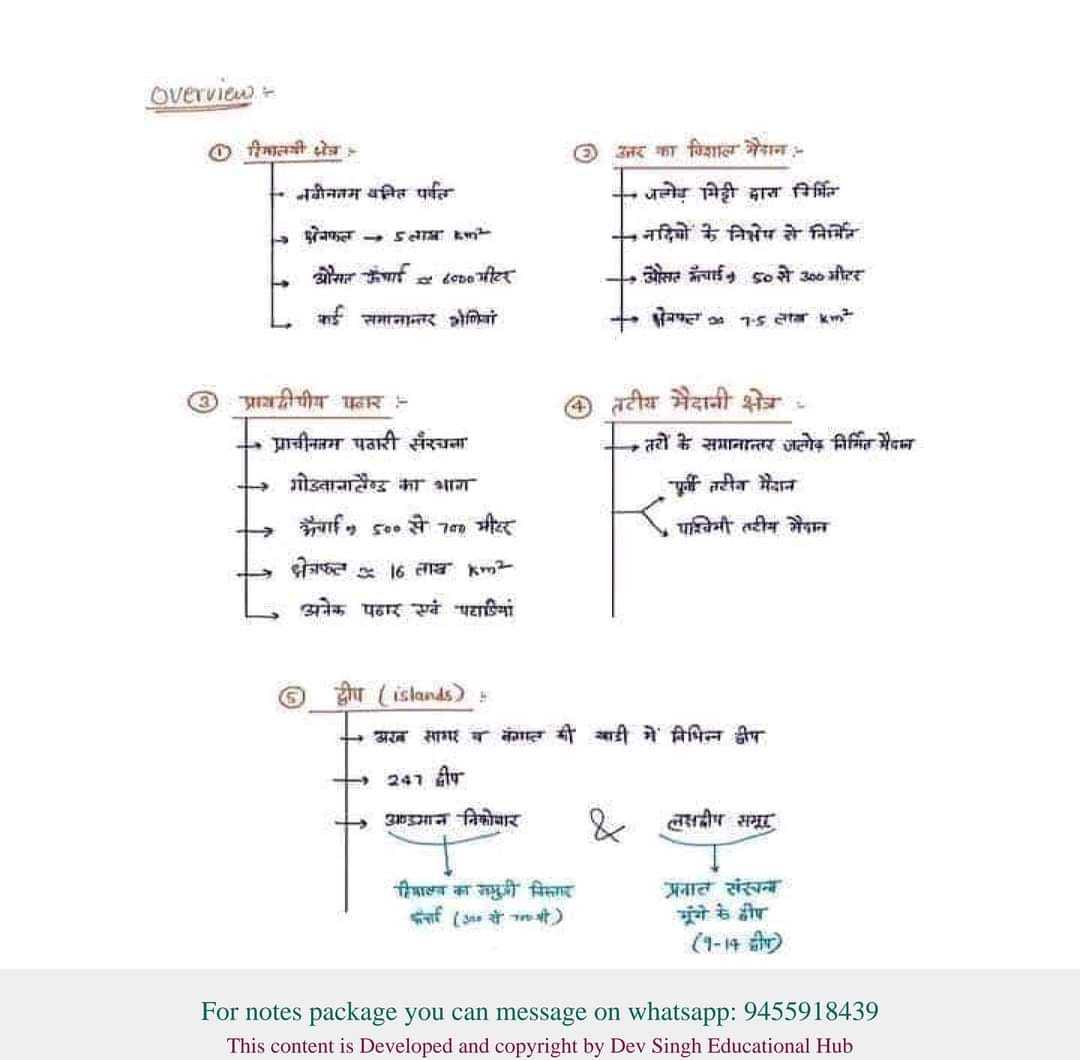 Overview :-
① हिमालयी क्षेत्र :-
नवीनतम वलित पर्वत
क्षेत्रफल → 5 लाख km²
औसत ऊँचाई ≈ 6000 मीटर
कई समानान्तर श्रेणियां
② उत्तर का विशाल मैदान :-
जलोढ़ मिट्टी द्वारा निर्मित
नदियों के निक्षेप से निर्मित
औसत ऊँचाई → 50 से 300 मीटर
क्षेत्रफल ≈ 7.5 लाख km²
③ प्रायद्वीपीय पठार :-
प्राचीनतम पठारी संरचना
गोंडवानालैण्ड का भाग
ऊँचाई → 500 से 700 मीटर
क्षेत्रफल ≈ 16 लाख km²
अनेक पठार एवं पहाड़ियां
④ तटीय मैदानी क्षेत्र :-
तटों के समानान्तर जलोढ़ निर्मित मैदान
पूर्वी तटीय मैदान
पश्चिमी तटीय मैदान
⑤ द्वीप (islands) :-
अरब सागर व बंगाल की खाड़ी में विभिन्न द्वीप
247 द्वीप
अण्डमान निकोबार & लक्षद्वीप समूह
हिमालय का समुद्री विस्तार
ऊँचाई
प्रवाल संरचना
मूंगे के द्वीप
(9-14 द्वीप)
For notes package you can message on whatsapp: 9455918439
This content is Developed and copyright by Dev Singh Educational Hub